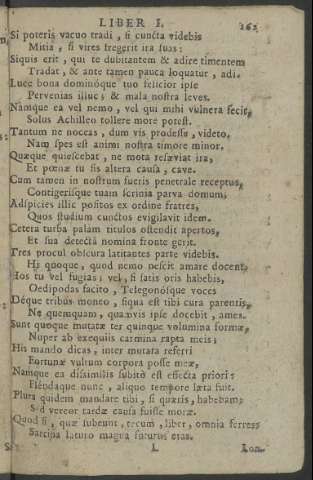 LIBER I. 162
Si poteris vacuo tradi, si cuncta videbis
Mitia, si vires fregerit ira suas:
Siquis erit, qui te dubitantem & adire timentem
Tradat, & ante tamen pauca loquatur, adi.
Luce bona dominóque tuo felicior ipse
Pervenias illuc; & mala nostra leves.
Namque ea vel nemo, vel qui mihi vulnera fecit,
Solus Achilleo tollere more potest.
Tantum ne noceas, dum vis prodesse, videto,
Nam spes est animi nostra timore minor.
Quæque quiescebat, ne mota resæviat ira,
Et pœnæ tu sis altera causa, cave.
Cum tamen in nostrum fueris penetrale receptus,
Contigerisque tuam scrinia parva domum;
Adspicies illic positos ex ordine fratres,
Quos studium cunctos evigilavit idem.
Cetera turba palam titulos ostendit apertos,
Et sua detectâ nomina fronte gerit.
Tres procul obscura latitantes parte videbis.
Hi quoque, quod nemo nescit amare docent,
Hos tu vel fugias; vel, si satis oris habebis,
Oedipodas facito, Telegonósque voces
Déque tribus moneo, siqua est tibi cura parentis,
Ne quemquam, quamvis ipse docebit, ames.
Sunt quoque mutatæ ter quinque volumina formæ,
Nuper ab exequiis carmina rapta meis;
His mando dicas, inter mutata referri
Fortunæ vultum corpora posse meæ,
Namque ea dissimilis subitò est effecta priori:
Flendaque nunc, aliquo tempore læta fuit.
Plura quidem mandare tibi, si quæris, habebam;
Sed vereor tardæ causa fuisse moræ.
Quod si, quæ subeunt, tecum, liber, omnia ferres;
Sarcina laturo magna futurus eras.
L Lon.